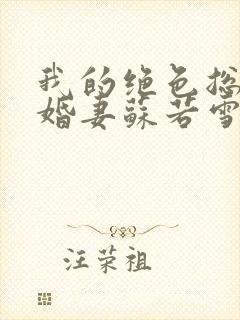 我的绝色总
婚妻苏若雪
汪荣祖